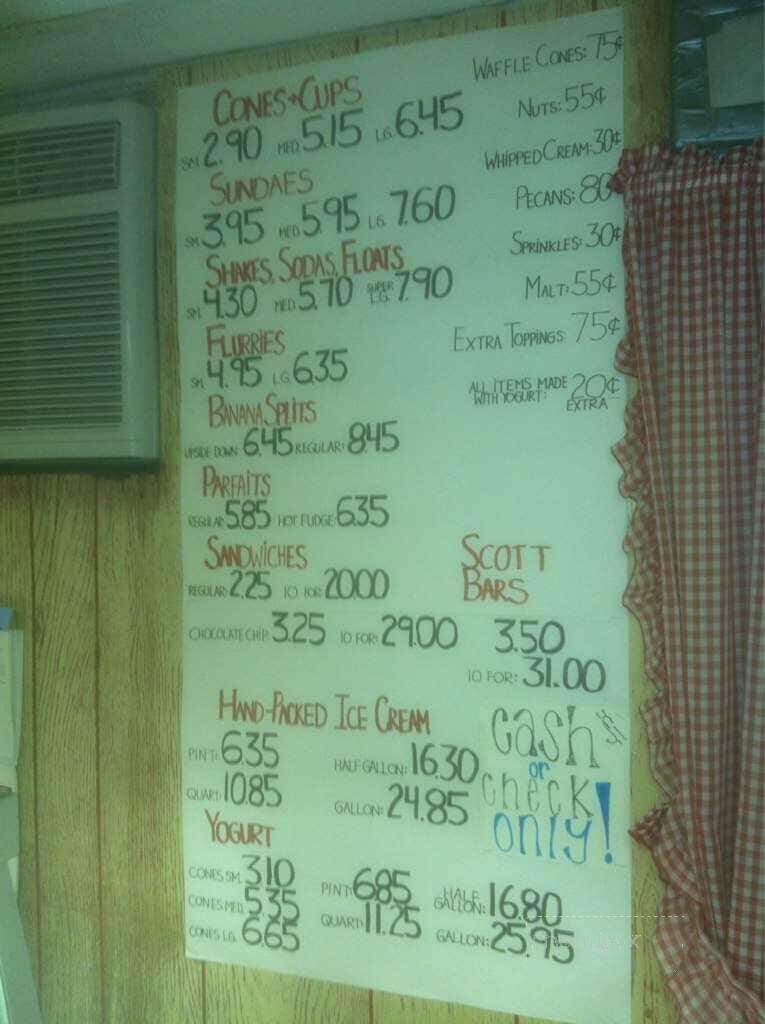 CONES + CUPS
SM. 2.90 MED. 5.15 LG. 6.45
SUNDAES
SM. 3.95 MED. 5.95 LG. 7.60
SHAKES, SODAS, FLOATS
SM. 4.30 MED. 5.70 SUPER LG. 7.90
FLURRIES
SM. 4.95 LG. 6.35
BANANA SPLITS
UPSIDE DOWN: 6.45 REGULAR: 8.45
PARFAITS
REGULAR: 5.85 HOT FUDGE: 6.35
SANDWICHES
REGULAR: 2.25 10 FOR: 20.00
CHOCOLATE CHIP: 3.25 10 FOR: 29.00
WAFFLE CONES: 75¢
NUTS: 55¢
WHIPPED CREAM: 30¢
PECANS: 80
SPRINKLES: 30¢
MALT: 55¢
EXTRA TOPPINGS: 75¢
ALL ITEMS MADE
WITH YOGURT: 20¢
EXTRA
SCOTT
BARS
3.50
10 FOR: 31.00
HAND-PACKED ICE CREAM
PINT: 6.35 HALF GALLON: 16.30
QUART: 10.85 GALLON: 24.85
cash
or
check
only!
YOGURT
CONES SM. 3.10 PINT: 6.85 HALF GALLON: 16.80
CONES MED. 5.35 QUART: 11.25 GALLON: 25.95
CONES LG. 6.65